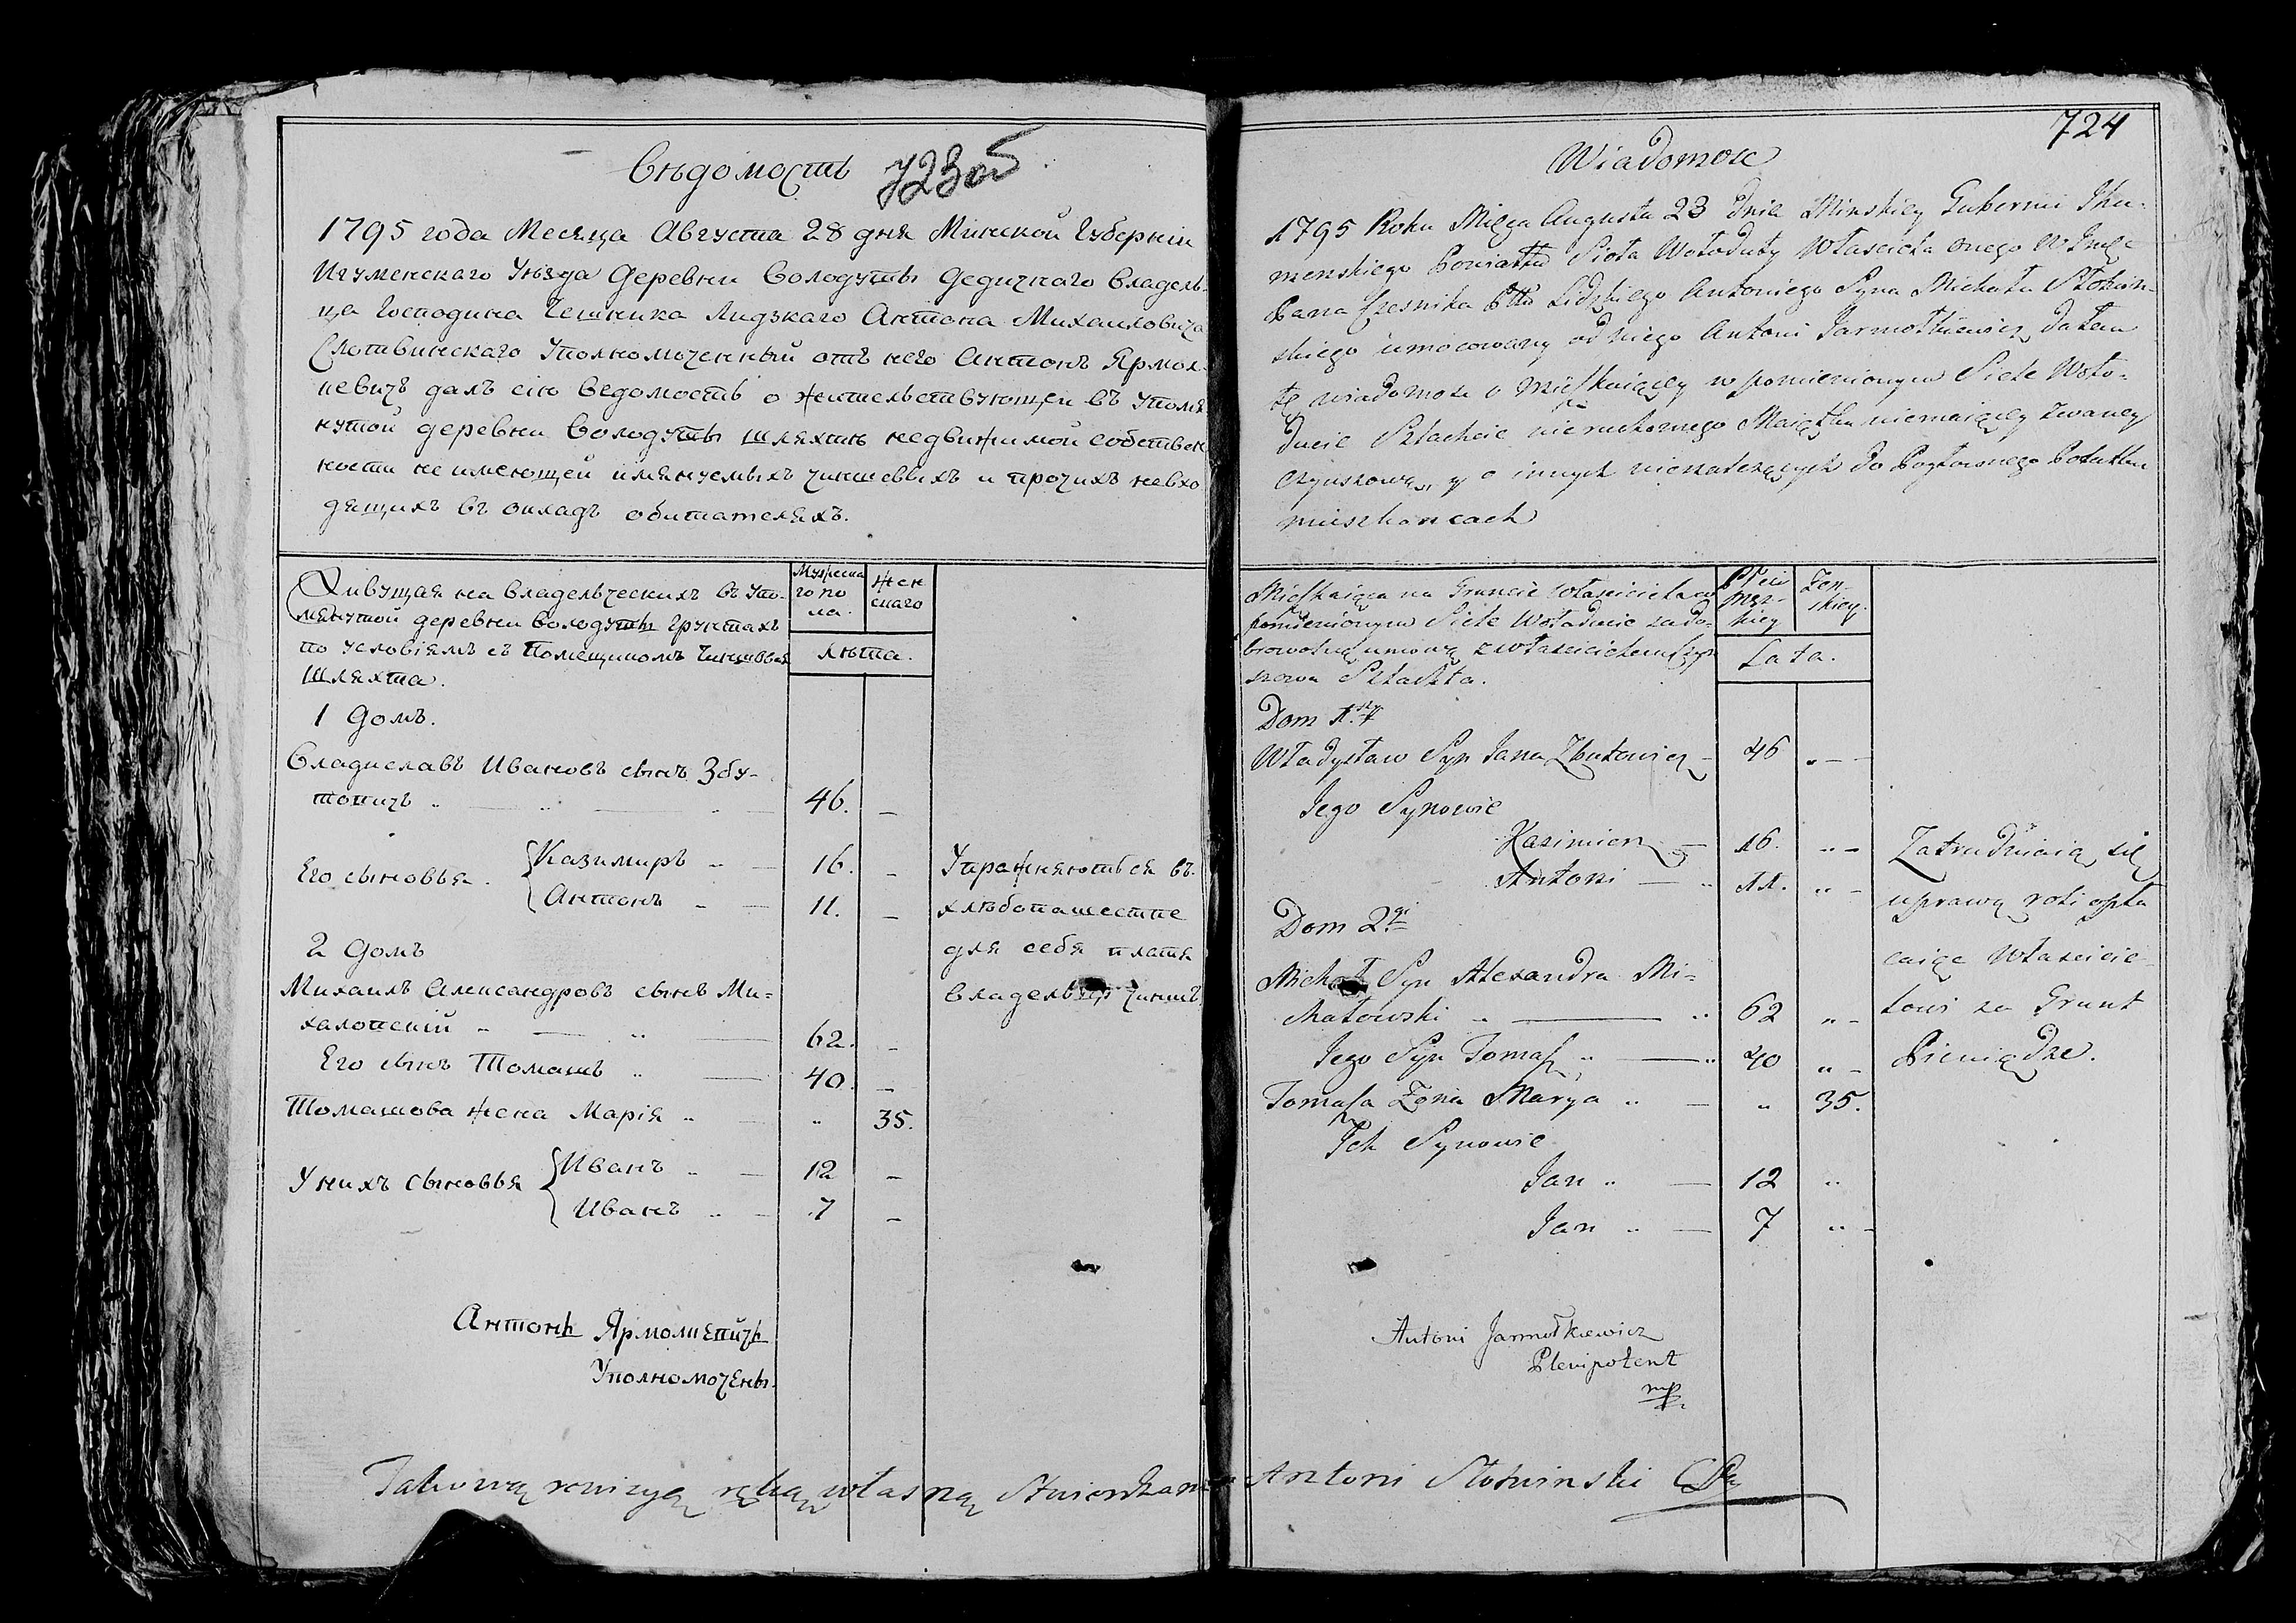 Вѣдомость 723 об
1795 года Месяца Августа 28 дня Минской Губернiи
Игуменскаго Уѣзда Деревни Володуты дедичнаго владель-
ца Господина Чешника Лидзкаго Антона Михайловича
Слотвинскаго Уполномоченный отъ него Антонъ Ярмол-
кевичъ далъ сiю ведомость о жительствующей въ упомя
нутой деревни Володуты шляхты недвижимой собствен
ности не имеющей имянуемыхъ чиншевыхъ и прочихъ невхо
дящихъ въ окладъ обитателяхъ.
Живущая на владельческихъ въ упо-
мянутой деревни Володуты грунтахъ
по условiямъ съ Помещикомъ Чиншовая
Шляхта.
Мужеска
го по
ла.
Жен
скаго
лѣта.
1 Домъ.
Владиславъ Ивановъ сынъ Збу-
товичъ 46. –
Его сыновья. Казимиръ 16. –
Антонъ 11. –
Упражняються въ
хлѣбопашестве
для себя платя
владельцу чиншъ
2 Домъ
Михаилъ Александровъ сынъ Ми-
халовскiй 62. –
Его сынъ Томашъ 40. –
Томашова жена Марiя „ 35.
У нихъ сыновья Иванъ 12 –
Иванъ 7 –
Антонъ Ярмолкевичъ
Уполномочены.
724
Wiadomosc
1795 Roku Mięca Augusta 23 Dnia Minskiey Gubernii Ihu-
menskiego Powiattu Sioła Wołoduty Własciciela onego W Jmci
Pana Czesnika Pttu Lidzkiego Antoniego Syna Michała Słotwin-
skiego umocowany od niego Antoni Jarmołkiewicz dałem
tę wiadomosc o Mieszkaiącey w pomienionym Siele Woło-
ducie Szlachcie nieruchomego Maiątku niemaiącey zwaney
czynszową, y o innych nienależących do Pogłownego Podatku
mieszkancach
Mieszkaiąca na Gruncie własciciela w
pomienionym Siele Wołoducie za do-
browolną umową z włascicielem Czyn
szowa Szlachta.
Płci
męz-
kiey
Żen-
skiey.
Lata.
Dom 1.szy
Władysław Syn Jana Zbutowicz – 46 „ –
Jego Synowie
Kazimierz – 16. „ –
Antoni – 11. „ –
Zatrudniaią się
uprawą roli opła
caiąc Włascicie
lowi za Grunt
Pieniądze.
Dom 2gi
Michał Syn Alexandra Mi-
chałowski 62 „ –
Jego Syn Tomasz 40 „ –
Tomasza Żona Marya „ 35.
Ich Synowie
Jan 12 „
Jan 7 „ –
Antoni Jarmołkiewicz
Plenipotent
mp
Takową rewizyą ręką własną stwierdzam Antoni Słotwinski